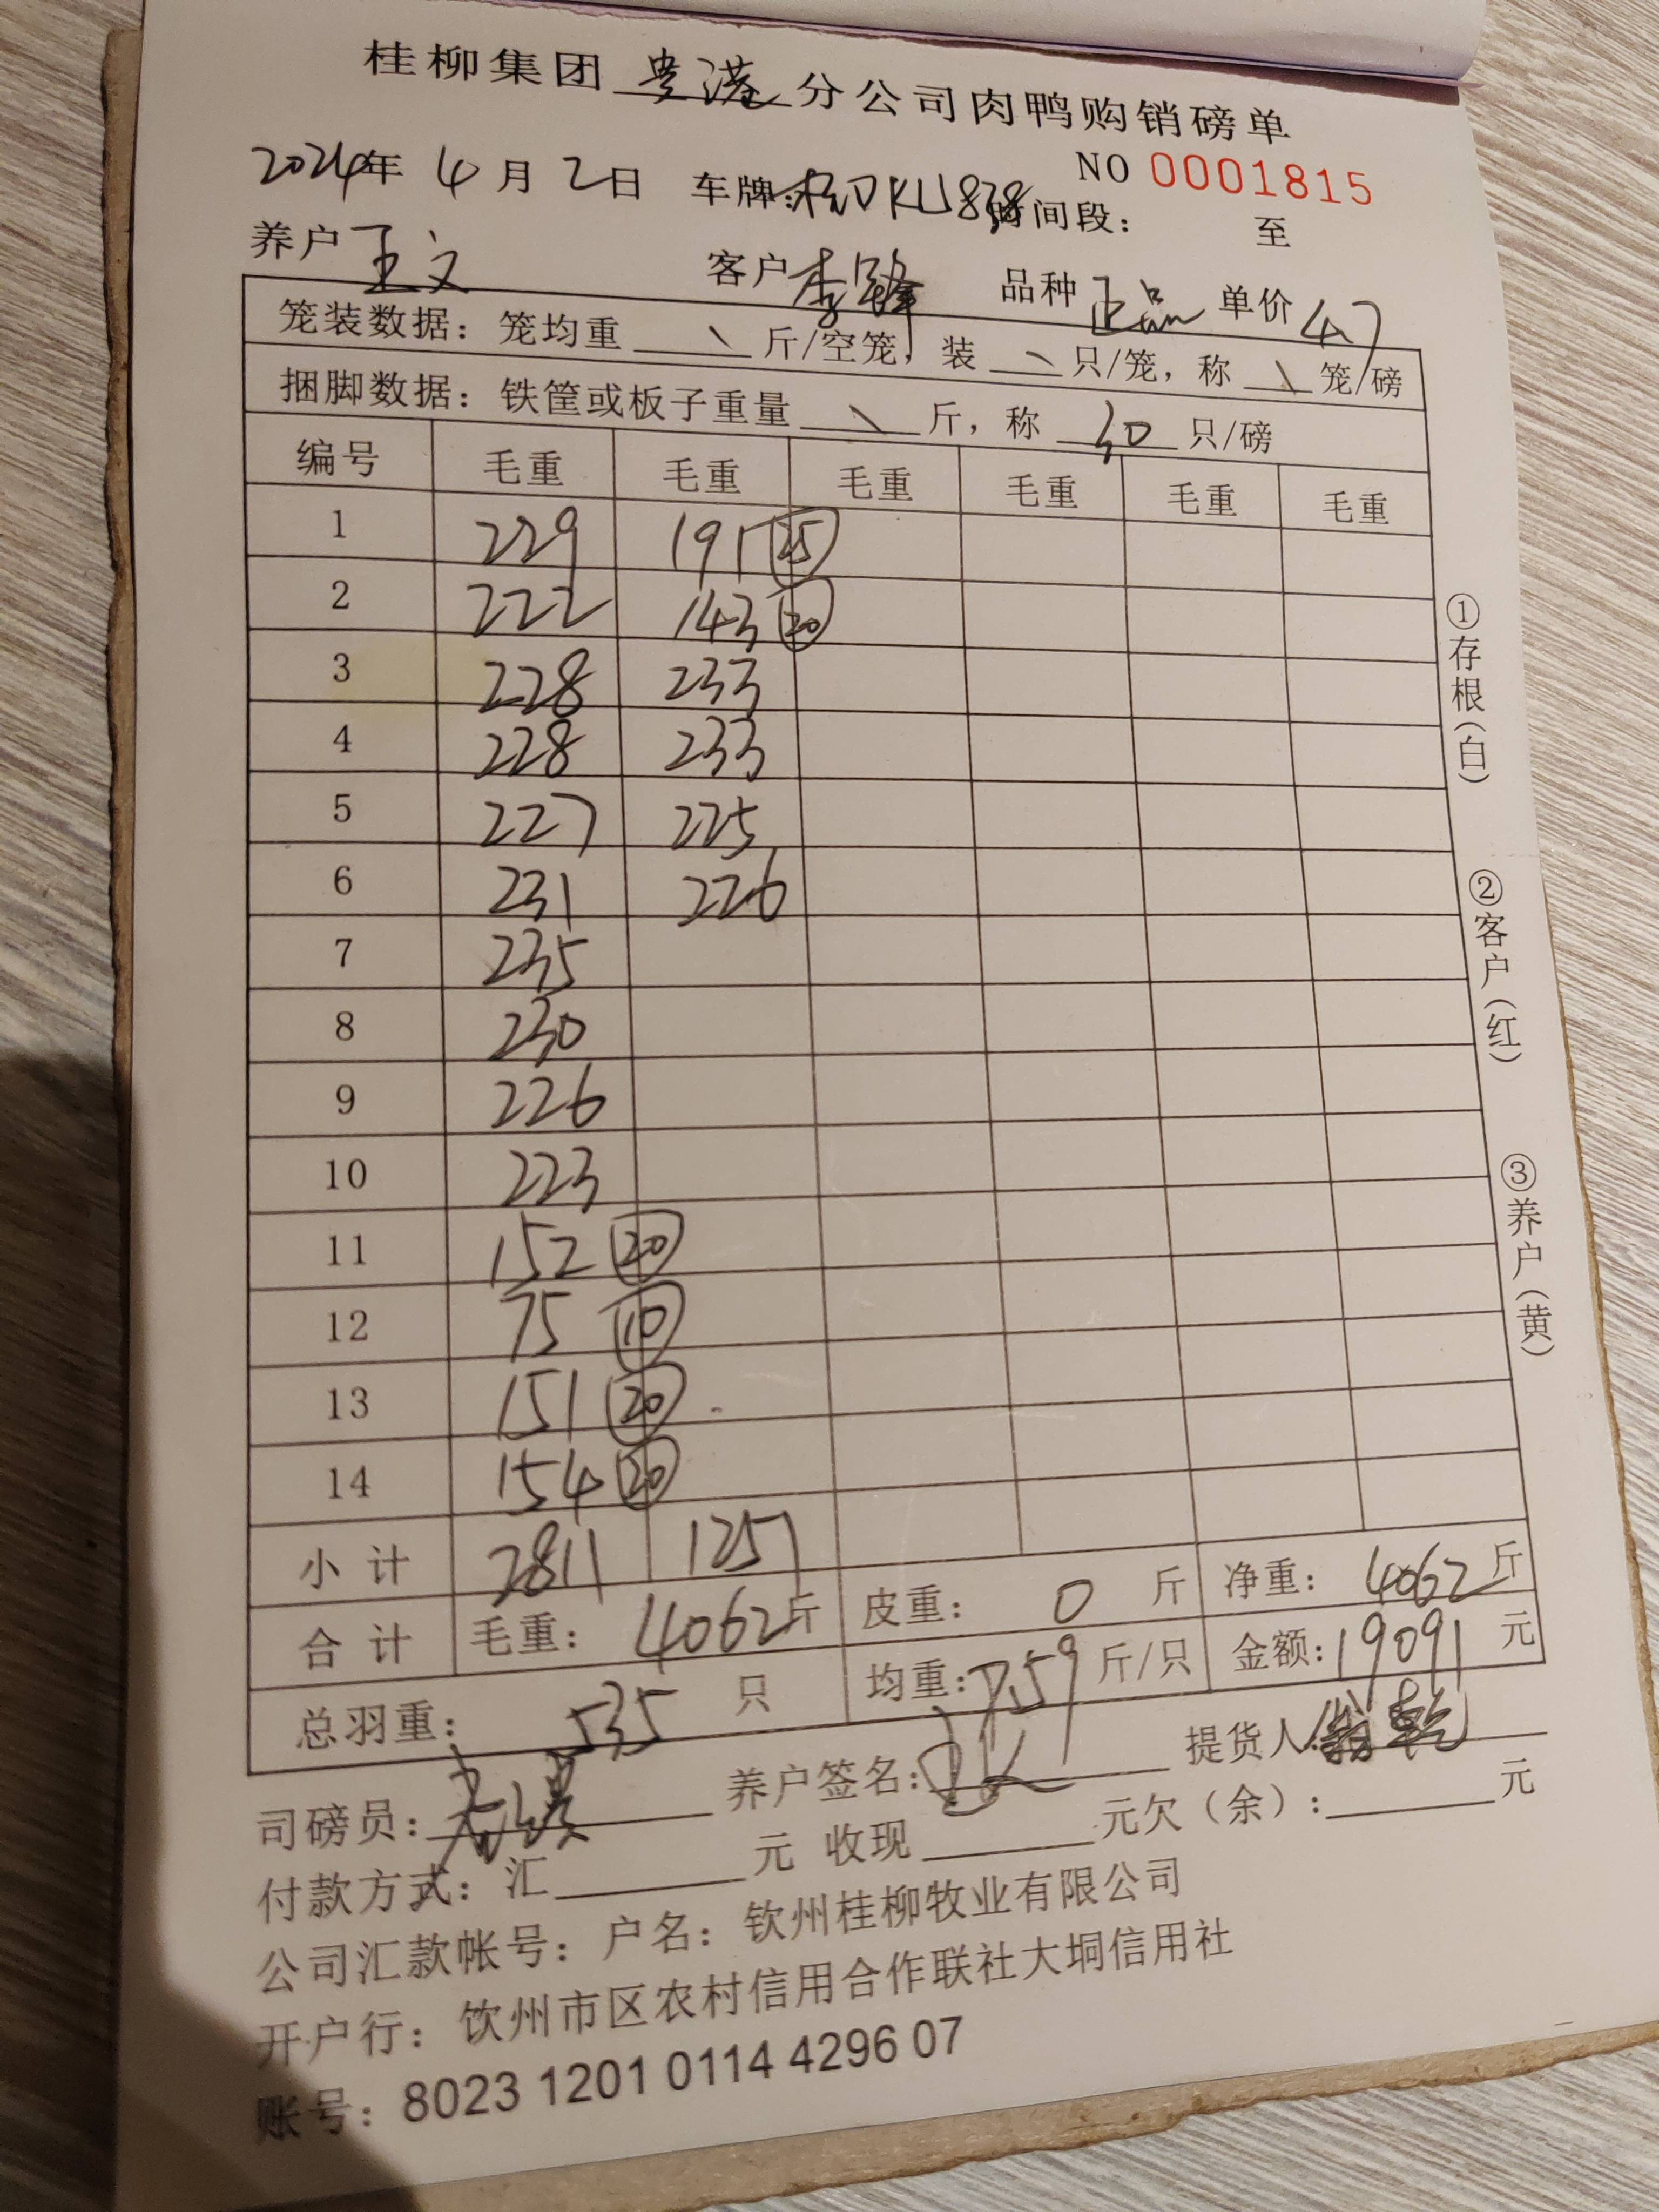 桂柳集团贵港分公司肉鸭购销磅单
NO 0001815
2024年 4月 2日 车牌: KU838 时间段: 至
养户 王文 客户 李锋 品种 正品 单价 4.7
笼装数据: 笼均重 \ 斤/空笼, 装 \ 只/笼, 称 \ 笼/磅
捆脚数据: 铁筐或板子重量 \ 斤, 称 30 只/磅
编号 毛重 毛重 毛重 毛重 毛重 毛重
1 229 191 25
2 222 143 20
3 228 233
4 228 233
5 227 225
6 231 226
7 235
8 230
9 226
10 223
11 152 20
12 75 10
13 151 20
14 154 20
小计 2811 1251
合计 毛重: 4062斤 皮重: 0 斤 净重: 4062斤
总羽重: 535 只 均重: 7.59 斤/只 金额: 19091 元
司磅员: 养户签名: 提货人:
付款方式: 汇 元 收现 元欠(余): 元
公司汇款帐号: 户名: 钦州桂柳牧业有限公司
开户行: 钦州市区农村信用合作联社大垌信用社
账号: 8023 1201 0114 4296 07
①存根(白)
②客户(红)
③养户(黄)